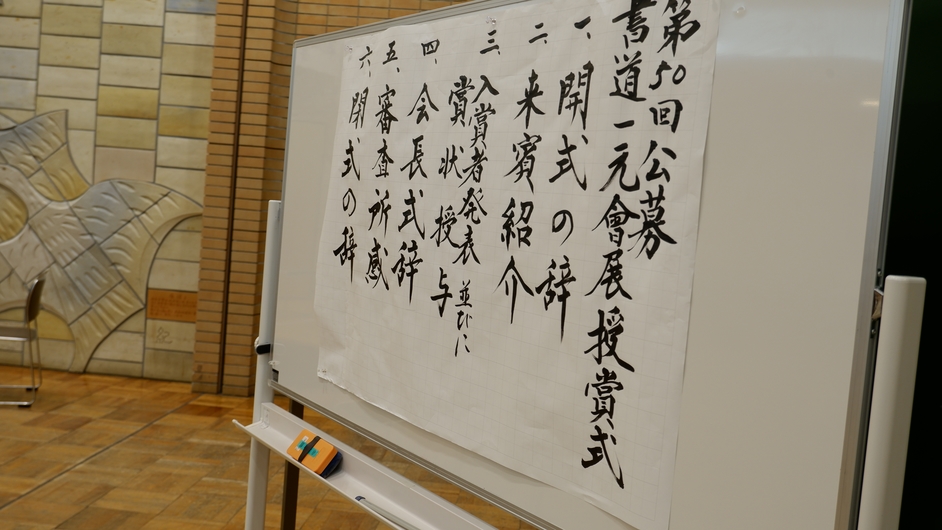 第50回公募
書道一元會展授賞式
一、開式の辞
二、来賓紹介
三、入賞者発表並びに
賞状授与
四、会長式辞
五、審査所感
六、閉式の辞